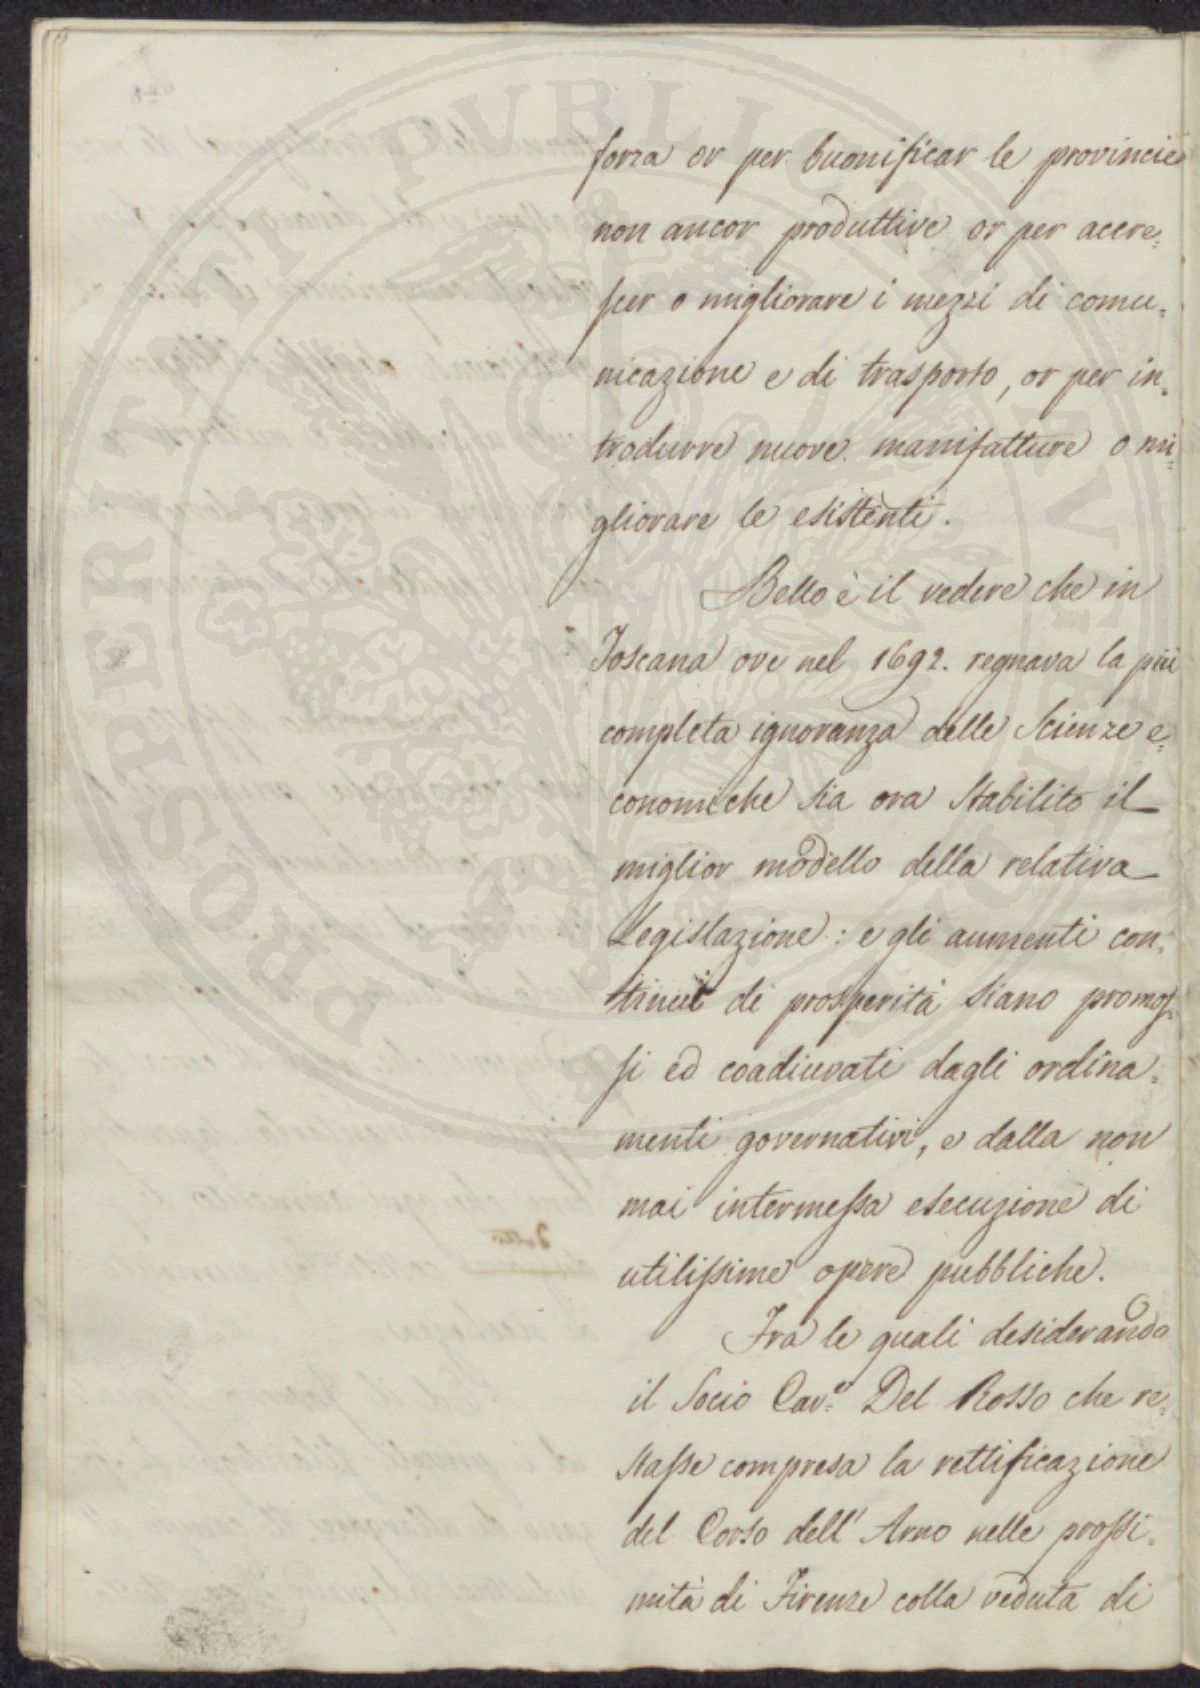 forza or per buonificar le provincie
non ancor produttive or per accre=
scer o migliorare i mezzi di comu=
nicazione e di trasporto, or per in=
trodurre nuove manifatture o mi=
gliorare le esistenti.
Bello è il vedere che in
Toscana ove nel 1692. regnava la più
completa ignoranza delle Scienze e=
conomiche sia ora stabilito il
miglior modello della relativa
Legislazione: e gli aumenti con=
tinui di prosperità siano promos=
si ed coadiuvati dagli ordina=
menti governativi, e dalla non
mai intermessa esecuzione di
utilissime opere pubbliche.
Fra le quali desiderando
il Socio Cav.e Del Rosso che re=
stasse compresa la rettificazione
del Corso dell' Arno nelle prossi=
mità di Firenze colla veduta di
PROSPERITATI PUBLICAE